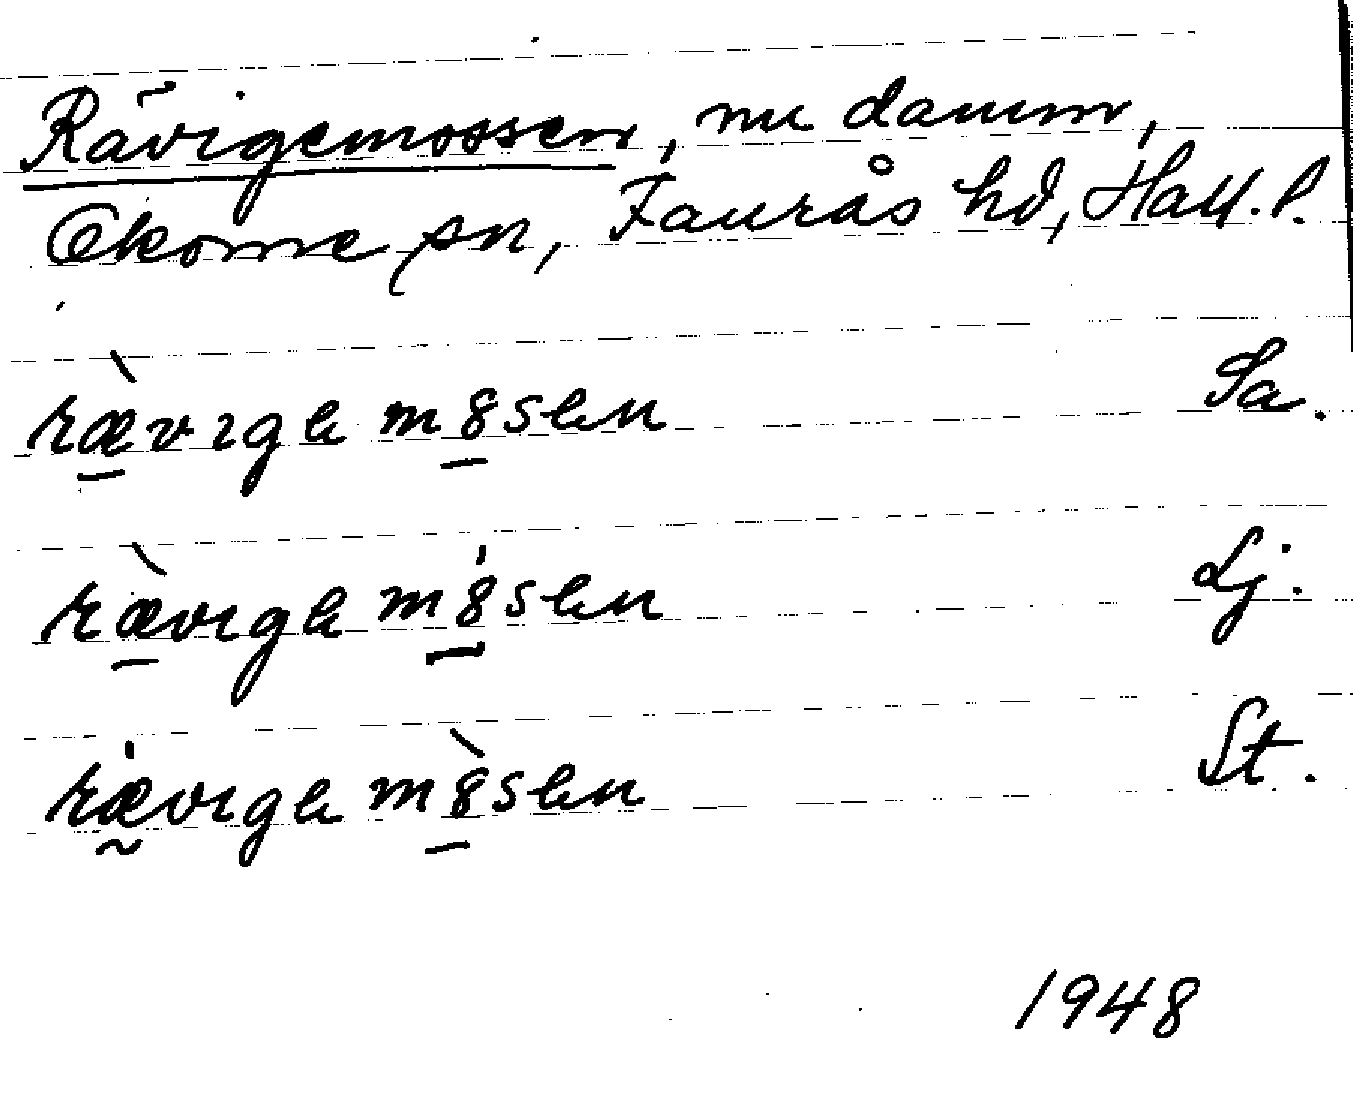 Rävigemossen, nu damm,
Okome sn, Faurås hd, Hall. l.
ræ̀vıgɐ mȣsɐn Sa.
ræ̀vıgɐ mȣ́sɐn Lj.
rǽvıgɐ mȣ̀sɐn St.
1948